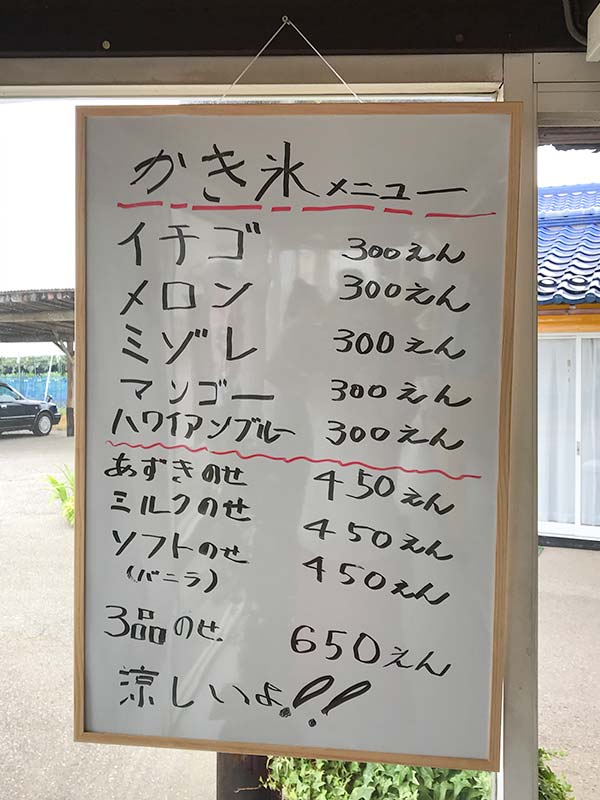 かき氷メニュー
イチゴ 300えん
メロン 300えん
ミゾレ 300えん
マンゴー 300えん
ハワイアンブルー 300えん
あずきのせ 450えん
ミルクのせ 450えん
ソフトのせ 450えん
(バニラ)
3品のせ 650えん
涼しいよ!!